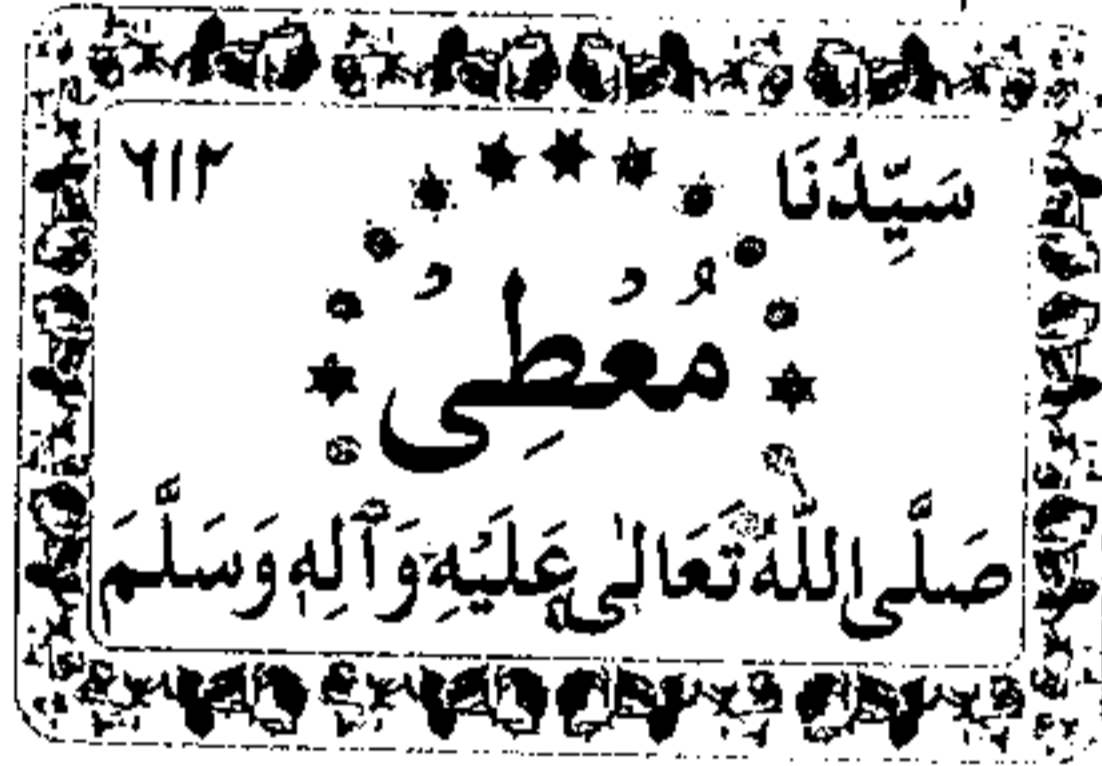 سَيِّدُنَا ٦١٢
مُعْطِى
صَلَّى اللّٰهُ تَعَالٰى عَلَيْهِ وَآلِهٖ وَسَلَّمَ